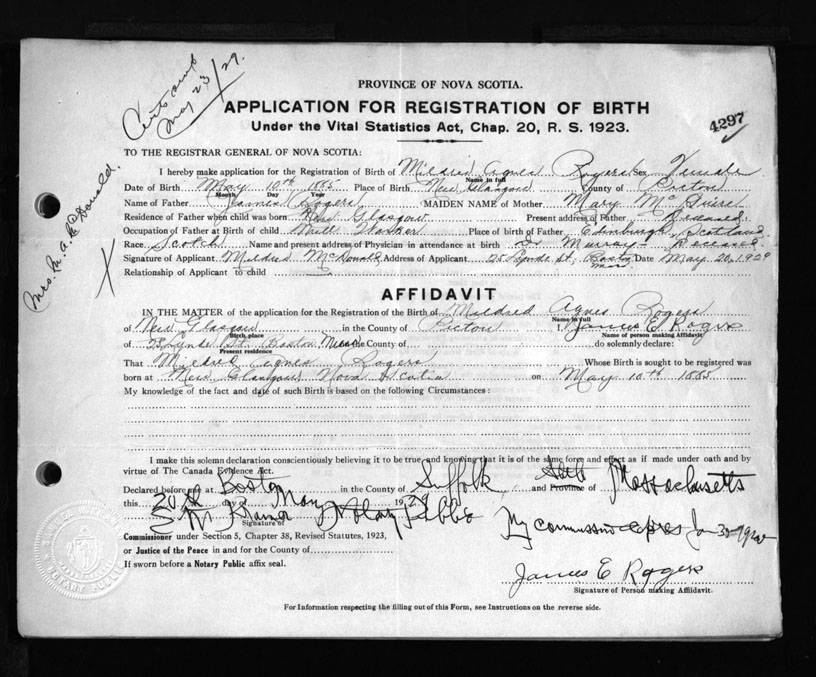 Certs only
May 23/29.
PROVINCE OF NOVA SCOTIA.
APPLICATION FOR REGISTRATION OF BIRTH
Under the Vital Statistics Act, Chap. 20, R. S. 1923.
4297
TO THE REGISTRAR GENERAL OF NOVA SCOTIA:
I hereby make application for the Registration of Birth of Mildred Agnes Rogers Sex Female
Name in full
Date of Birth May 10th 1885 Place of Birth New Glasgow County of Pictou
Month Day Year
Name of Father James Rogers MAIDEN NAME of Mother Mary McGuire
Residence of Father when child was born New Glasgow Present address of Father Deceased
Occupation of Father at Birth of child Mill Worker Place of birth of Father Edinburgh, Scotland
Race Scotch Name and present address of Physician in attendance at birth Dr Murray - Deceased
Signature of Applicant Mildred McDonald Address of Applicant 25 Lynde St, Boston Mass Date May 20, 1929
Relationship of Applicant to child
Mrs. M. A. McDonald.
AFFIDAVIT
IN THE MATTER of the application for the Registration of the Birth of Mildred Agnes Rogers
Name in full
of New Glasgow in the County of Pictou I, James E Rogers
Birth place Name of person making Affidavit
of 25 Lynde St. Boston Mass the County of do solemnly declare:
Present residence
That Mildred Agnes Rogers Whose Birth is sought to be registered was
born at New Glasgow Nova Scotia on May 10th 1885
My knowledge of the fact and date of such Birth is based on the following Circumstances:
I make this solemn declaration conscientiously believing it to be true, and knowing that it is of the same force and effect as if made under oath and by
virtue of The Canada Evidence Act.
Declared before me at Boston in the County of Suffolk and Province of State Massachusetts
this 20th day of May 1929
Notary Public My commission expires Jan 30
Signature of
Commissioner under Section 5, Chapter 38, Revised Statutes, 1923,
or Justice of the Peace in and for the County of
If sworn before a Notary Public affix seal.
James E Rogers
Signature of Person making Affidavit.
For Information respecting the filling out of this Form, see Instructions on the reverse side.